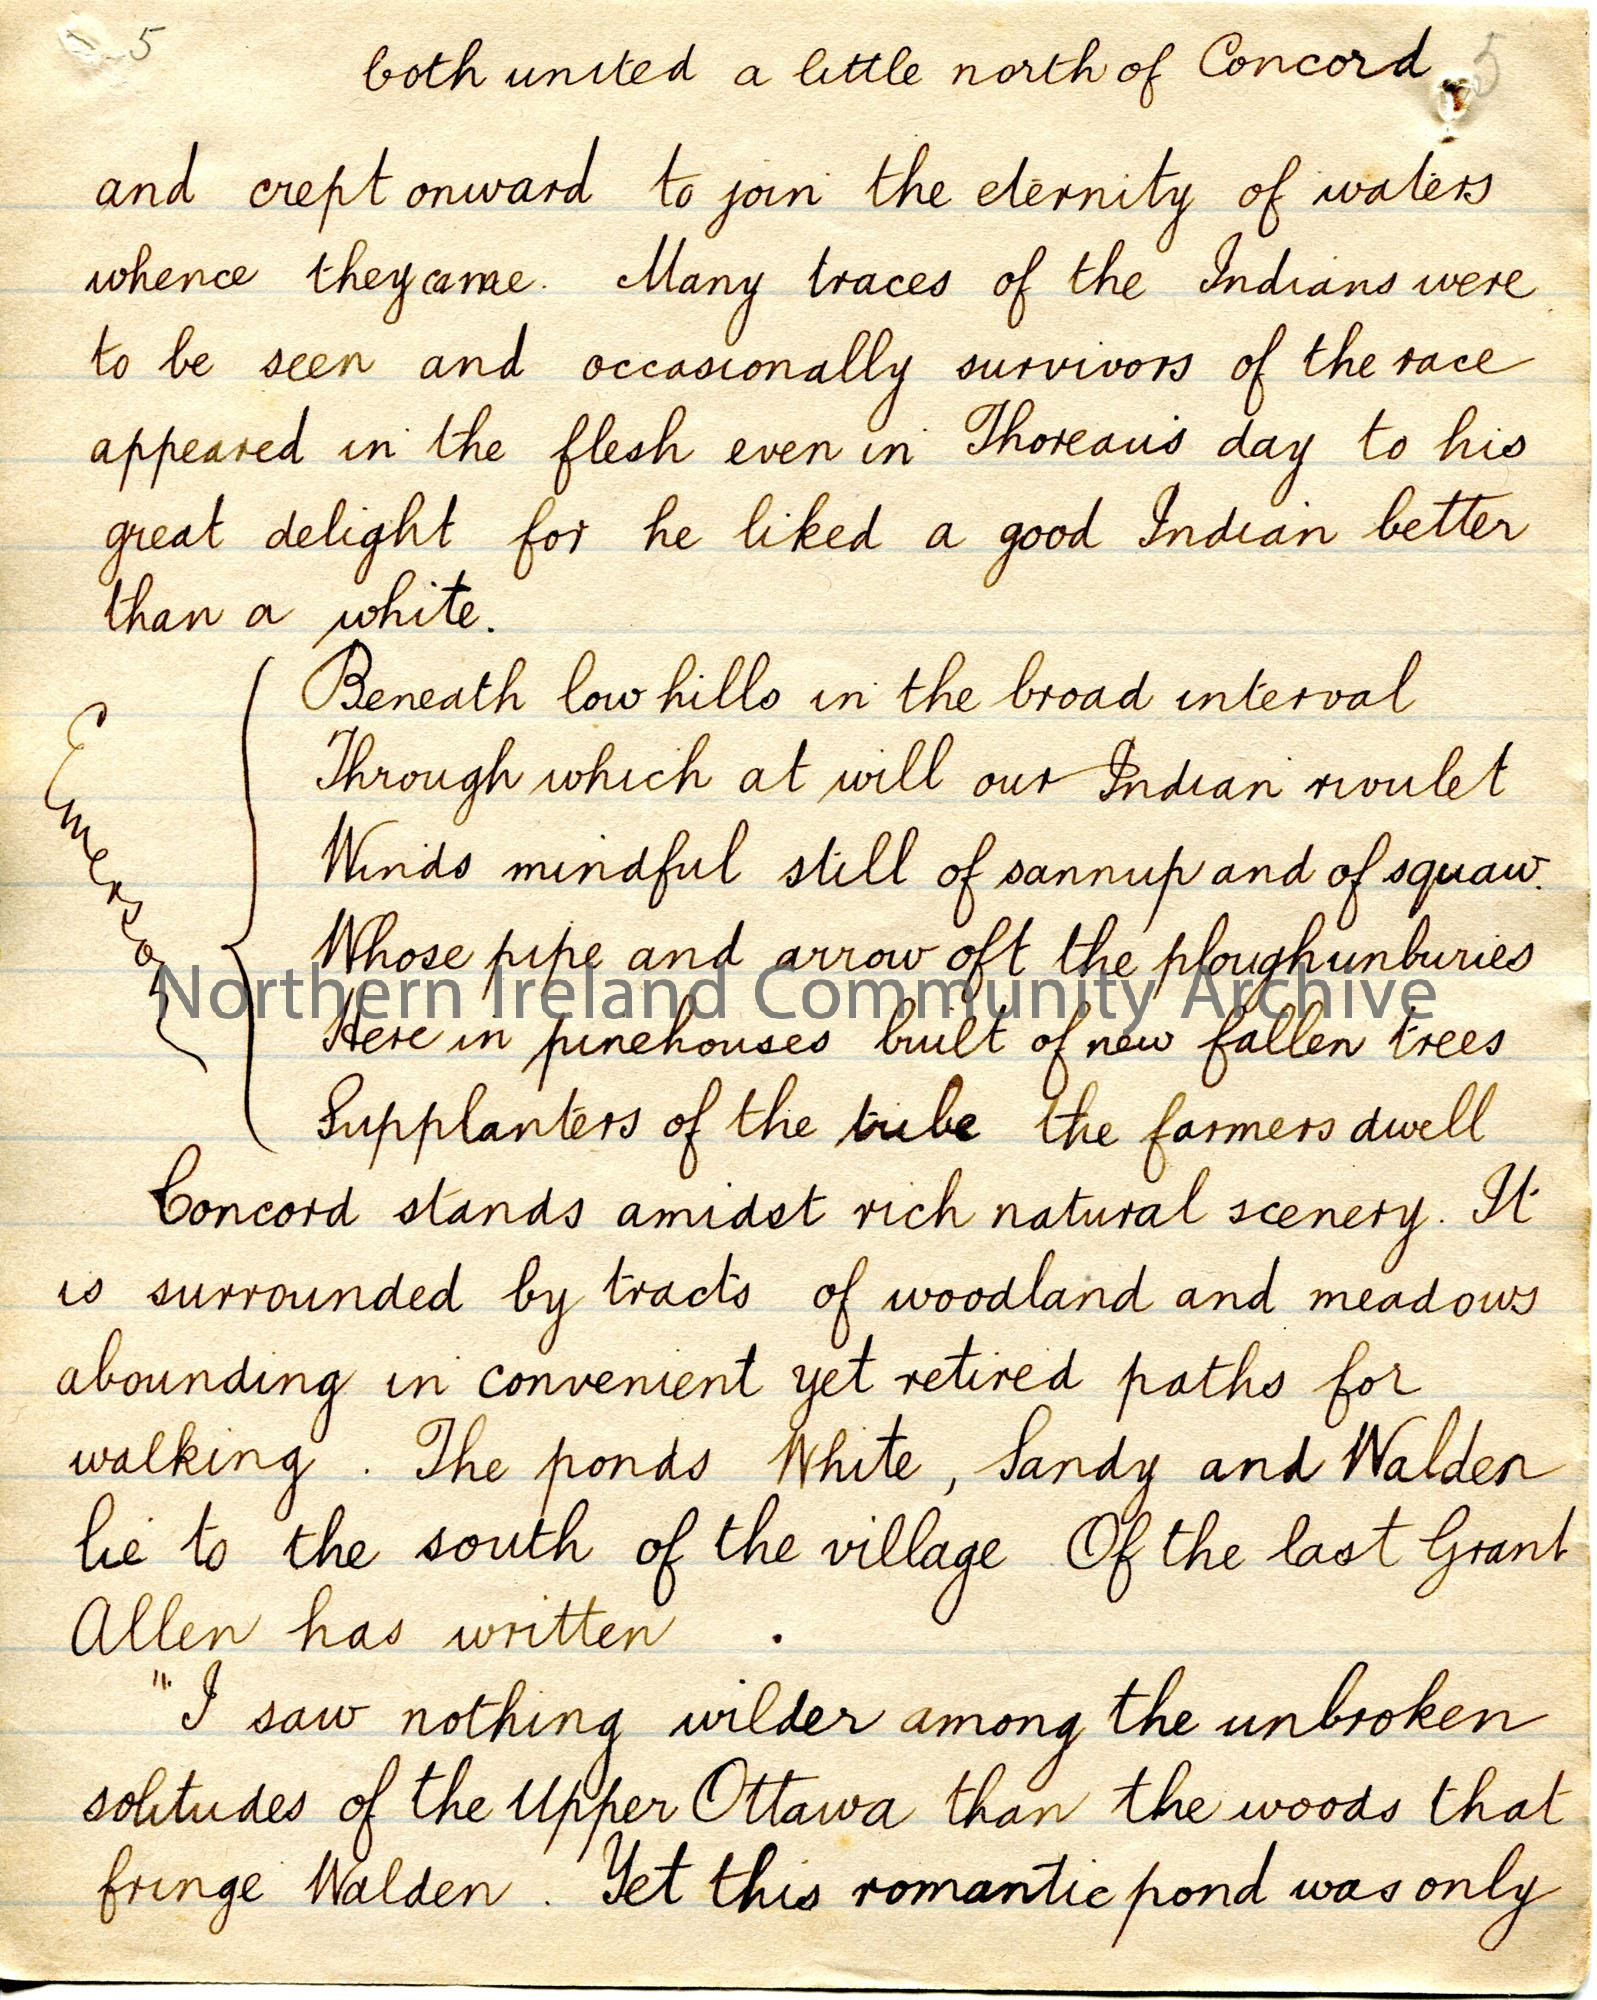 5
5
both united a little north of Concord
and crept onward to join the eternity of waters
whence they came. Many traces of the Indians were
to be seen and occasionally survivors of the race
appeared in the flesh even in Thoreau's day to his
great delight for he liked a good Indian better
than a white.
Emerson
Beneath low hills in the broad interval
Through which at will our Indian rivulet
Winds mindful still of sannup and of squaw.
Whose pipe and arrow oft the plough unburies
Here in pinehouses built of new fallen trees
Supplanters of the tribe the farmers dwell
Northern Ireland Community Archive
Concord stands amidst rich natural scenery. It
is surrounded by tracts of woodland and meadows
abounding in convenient yet retired paths for
walking. The ponds White, Sandy and Walden
lie to the south of the village Of the last Grant
Allen has written .
"I saw nothing wilder among the unbroken
solitudes of the Upper Ottawa than the woods that
fringe Walden. Yet this romantic pond was only